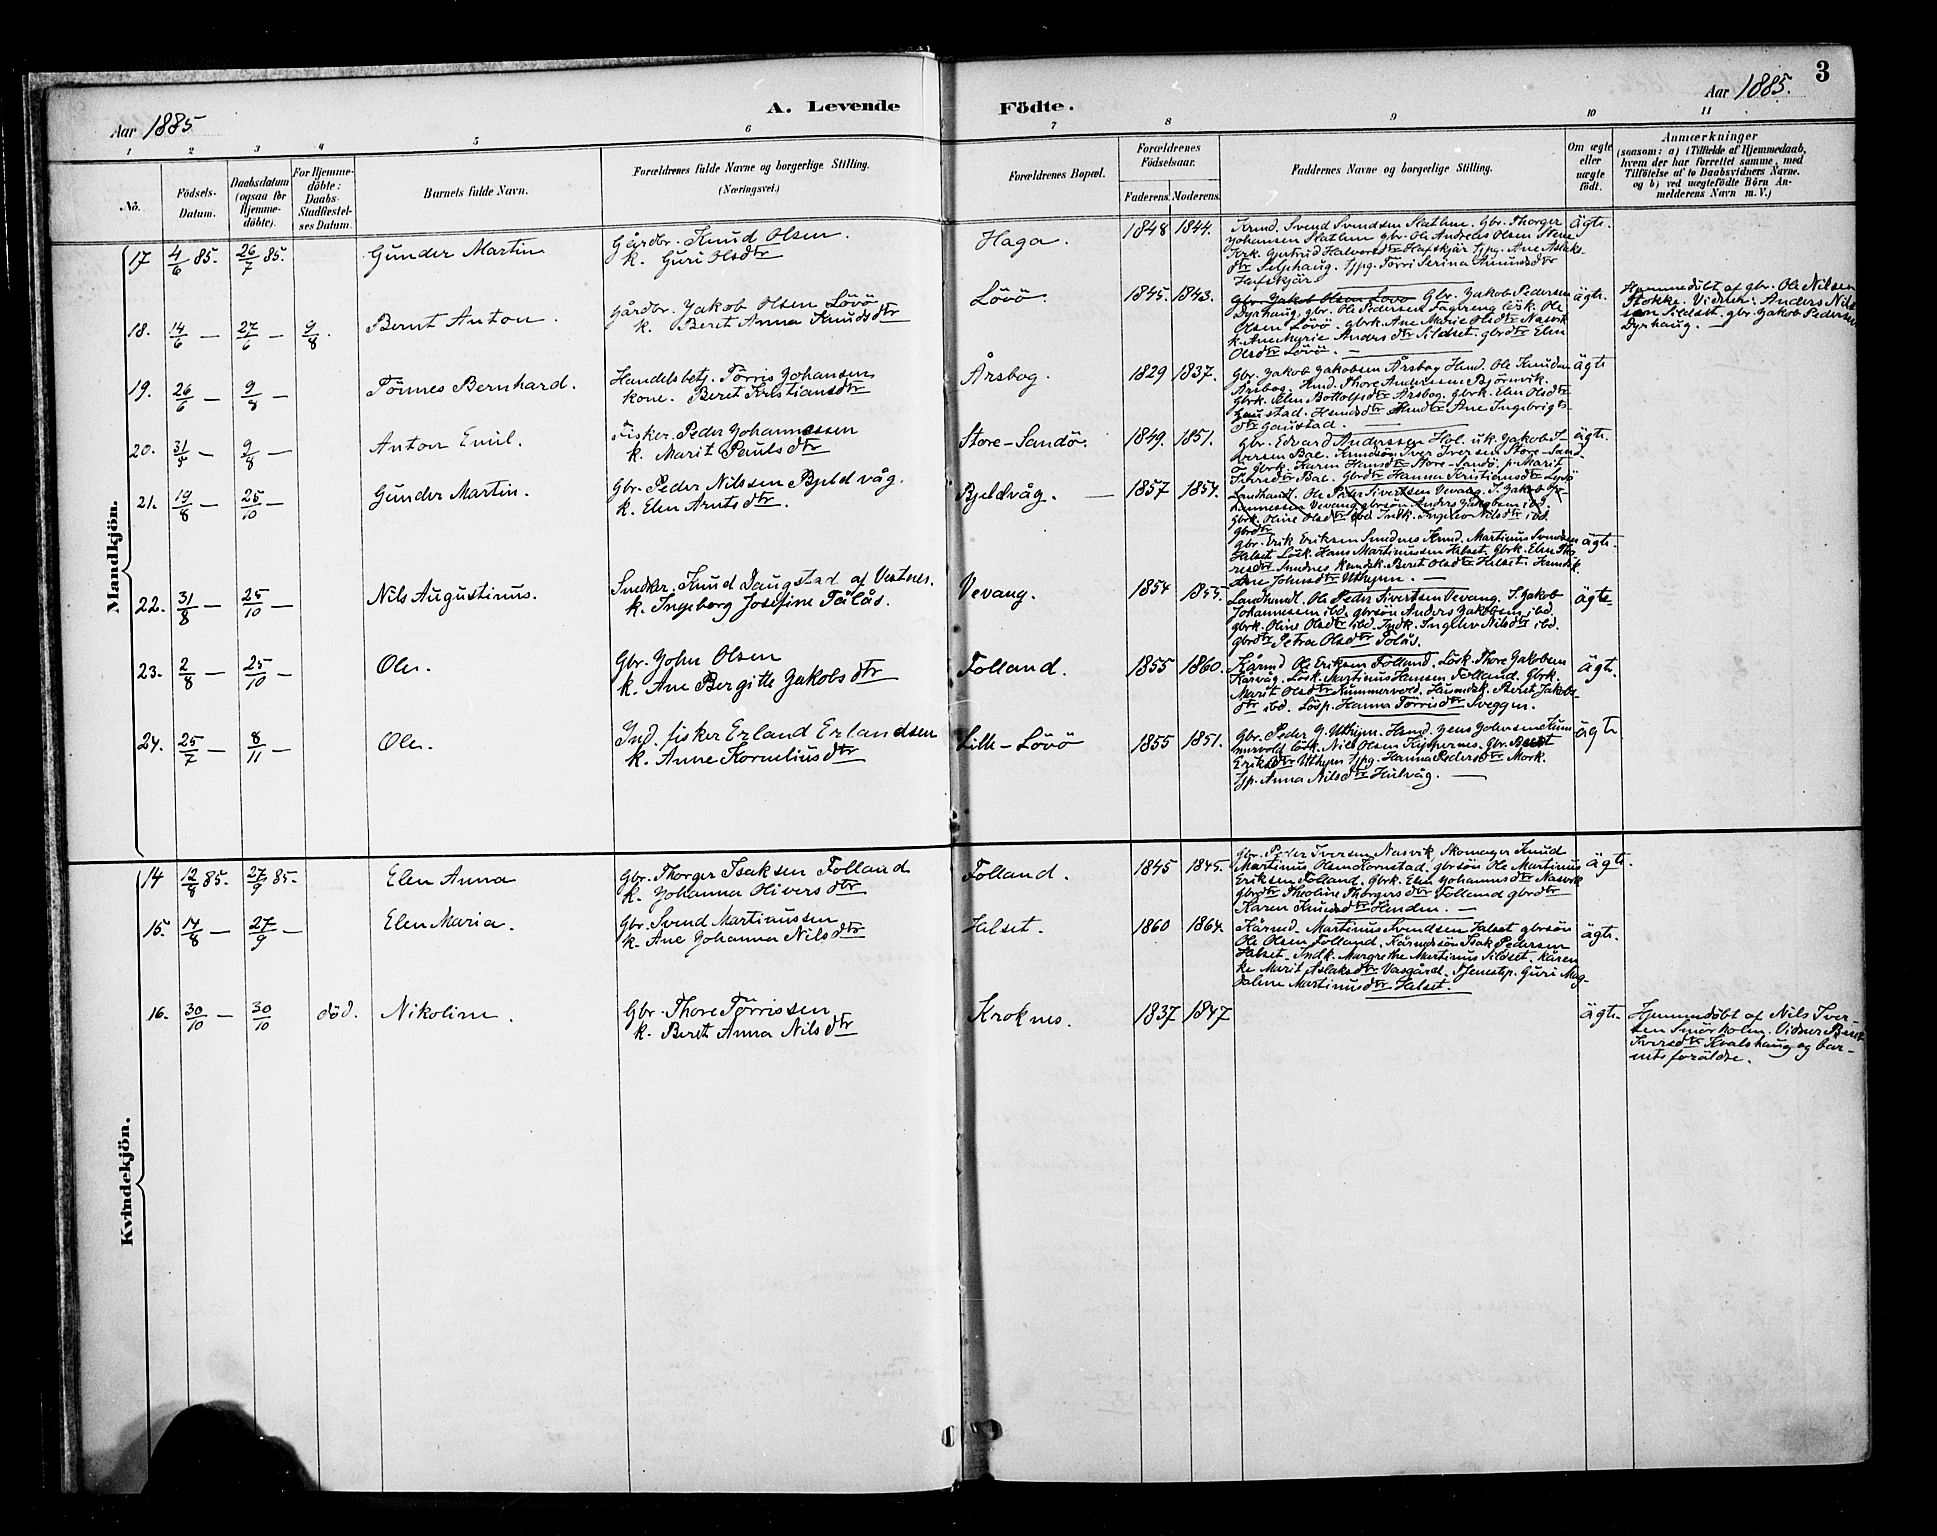 3
Aar 1885
A. Levende Födte.
Aar 1885.
1 2 3 4 5 6 7 8 9 10 11
No.
Födsels-
Datum.
Daabsdatum
(ogsaa for
Hjemme-
döbte).
For Hjemme-
döbte:
Daabs-
Stadfæstel-
ses Datum.
Barnets fulde Navn.
Forældrenes fulde Navne og borgerlige Stilling.
(Næringsvei.)
Forældrenes Bopæl.
Forældrenes
Födselsaar.
Faderens. Moderens.
Faddernes Navne og borgerlige Stilling.
Om ægte
eller
uægte
födt.
Anmærkninger
(saasom: a) i Tilfælde af Hjemmedaab,
hvem der har forrettet samme, med
Tilföielse af to Daabsvidners Navne.
og b) ved uægtefödte Börn An-
melderens Navn m. V.)
Mandkjön.
17 4/6 85. 26/7 85. Gunder Martin
Gårdbr. Knud Olsen.
k. Guri Olsdtr
Haga. 1848 1844.
Svend Svendsen Slatlem. Gbr. Thorger
Johansen Slatlem gbr. Ole Andreas Olsen
Gjertrud Halvorsdtr Hafskjär Ane Aslaks-
dtr Törri Serina Amundsdtr
Hafskjär
ägte.
18. 14/6 — 27/6 — 9/8. Bernt Anton.
Gårdbr. Jakob Olsen Lövö
k. Beret Anna Knudsdtr
Lövö. 1845. 1843.
Gbr. Jakob Olsen Lövö Gbr. Jakob Pedersen
Dyrhaug. gbr. Ole Pedersen Fagereng Lösk. Ole
Olsen Lövö. gbrk. Ane Marie Olsdtr Nasvik
k. Ane Andersdtr Sildset. gbrdtr Elen
Olsdtr Lövö. —
ägte.
Hjemmedöbt af gbr. Ole Nilsen
Stokke. Vidner: Anders Nil-
sen Sildset. gbr. Jakob Pedersen
Dyrhaug. —
19. 26/6 — 9/8 — Tönnes Bernhard.
Handelsbetj. Törris Johansen
kone. Beret Kristiansdtr
Årsbog. 1829 1837.
Gbr. Jakob Jakobsen Årsbog Ole Knudsen
Årsbog. Thore Andersen Björnvik.
Gbrk. Elen Bottolfsdtr Årsbog. gbrk. Elen Olsdtr
Gaustad. Ane Ingebrigts-
dtr Gaustad. —
ägte
20. 31/5 — 9/8 — Anton Emil.
Fisker. Peder Johannessen
k. Marit Paulsdtr
Store-Sandö. 1849. 1851.
Gbr. Edvard Andersen Hol. u.k. Jakob I-
versen Bae. Iver Iversen Store-Sand-
ö gbrk. Karen Hansdtr Store-Sandö. p. Marit
Bae. Gbrdtr Hanna Kristiansdtr
ägte.
21. 19/8 — 25/10 — Gunder Martin.
Gbr. Peder Nilssen Bjeldvåg.
k. Elen Arntsdtr.
Bjeldvåg. — 1857 1854.
Landhandl. Ole Peder Sivertsen Vevang. J. Jakob Jo-
hannessen Vevang. gbrsön Anders Jakobsen ibd.
Gbrk. Oline Olsdtr ibd Indk. Nilsdtr ibd.
gbrdtr
Gbr. Erik Eriksen Martinus Svendsen
Halset Lösk. Hans Martinussen Halset. Gbrk. Elen Tho-
resdtr Beret Olsdtr Halset.
Ane Johnsdtr Uthjem. —
ägte.
22. 31/8 — 25/10 — Nils Augustinus.
Snedker. Knud Daugstad af Vestnes.
k. Ingeborg Josefine Tölås.
Vevang. 1854 1855.
Landhandl. Ole Peder Sivertsen Vevang. J. Jakob
Johannessen ibd. gbrsön Anders Jakobsen ibd.
gbrk. Oline Olsdtr ibd. Indk. Nilsdtr ibd.
gbrdtr Petra Olsdtr Tölås.
ägte
23. 2/8 — 25/10 — Ole.
Gbr. John Olsen
k. Ane Bergitte Jakobsdtr
Folland. 1855 1860.
Kårmd Ole Eriksen Folland. Lösk. Thore Jakobsen
Kårvåg. Lösk. Martinus Hansen Folland. Gbrk.
Marit Olsdtr Kummervold. Beret Jakobs-
dtr ibd. Hanna Törrisdtr Sveggen.
ägte.
24. 25/7 — 8/11 — Ole.
Ind. fisker Erland Erlandsen
k. Anne Korneliusdtr
Lille-Lövö 1855 1851.
Gbr. Peder J. Uthjem. Jens Johnsen Kum-
mervold Lösk. Nils Olsen Gbr. Beret
Eriksdtr Uthjem Hanna Pedersdtr Mork.
Anna Nilsdtr Hulvåg. —
ägte
Kvindekjön.
14 12/8 85. 27/9 85. Elen Anna
Gbr. Thorger Isaksen Folland
k. Johanna Oliversdtr
Folland. 1845 1845.
Gbr. Peder Iversen Nasvik, Skomager Knud
Martinus Olsen Hornstad. gbrsön Ole Martinus
Eriksen Folland. Gbrk. Elen Johannsdtr Nasvik
gbrdtr Theoline Thorgersdtr Folland gbrdtr
Karen Knudsdtr Henden. —
ägte.
15. 14/8 — 27/9 — Elen Maria.
Gbr. Svend Martinussen
k. Ane Johanna Nilsdtr
Halset. 1860 1864.
Kårmd. Martinus Svendsen Halset gbrsön
Ole Olsen Folland. Kårmdsön Isak Pedersen
Halset. Indk. Margrethe Martinus Sildset.
Marit Aslaksdtr Vasgård. Tjenestp. Guri Mag-
dalene Martinusdtr Halset.
ägte.
16. 30/10 — 30/10 död. Nikoline.
Gbr. Thore Törrissen
k. Beret Anna Nilsdtr
Kroknes. 1837 1847
ägte.
Hjemmedöbt af Nils Iver-
sen Smörholm. Vidner Beret
Iversdtr Kvalshaug og bar-
nets forældre.